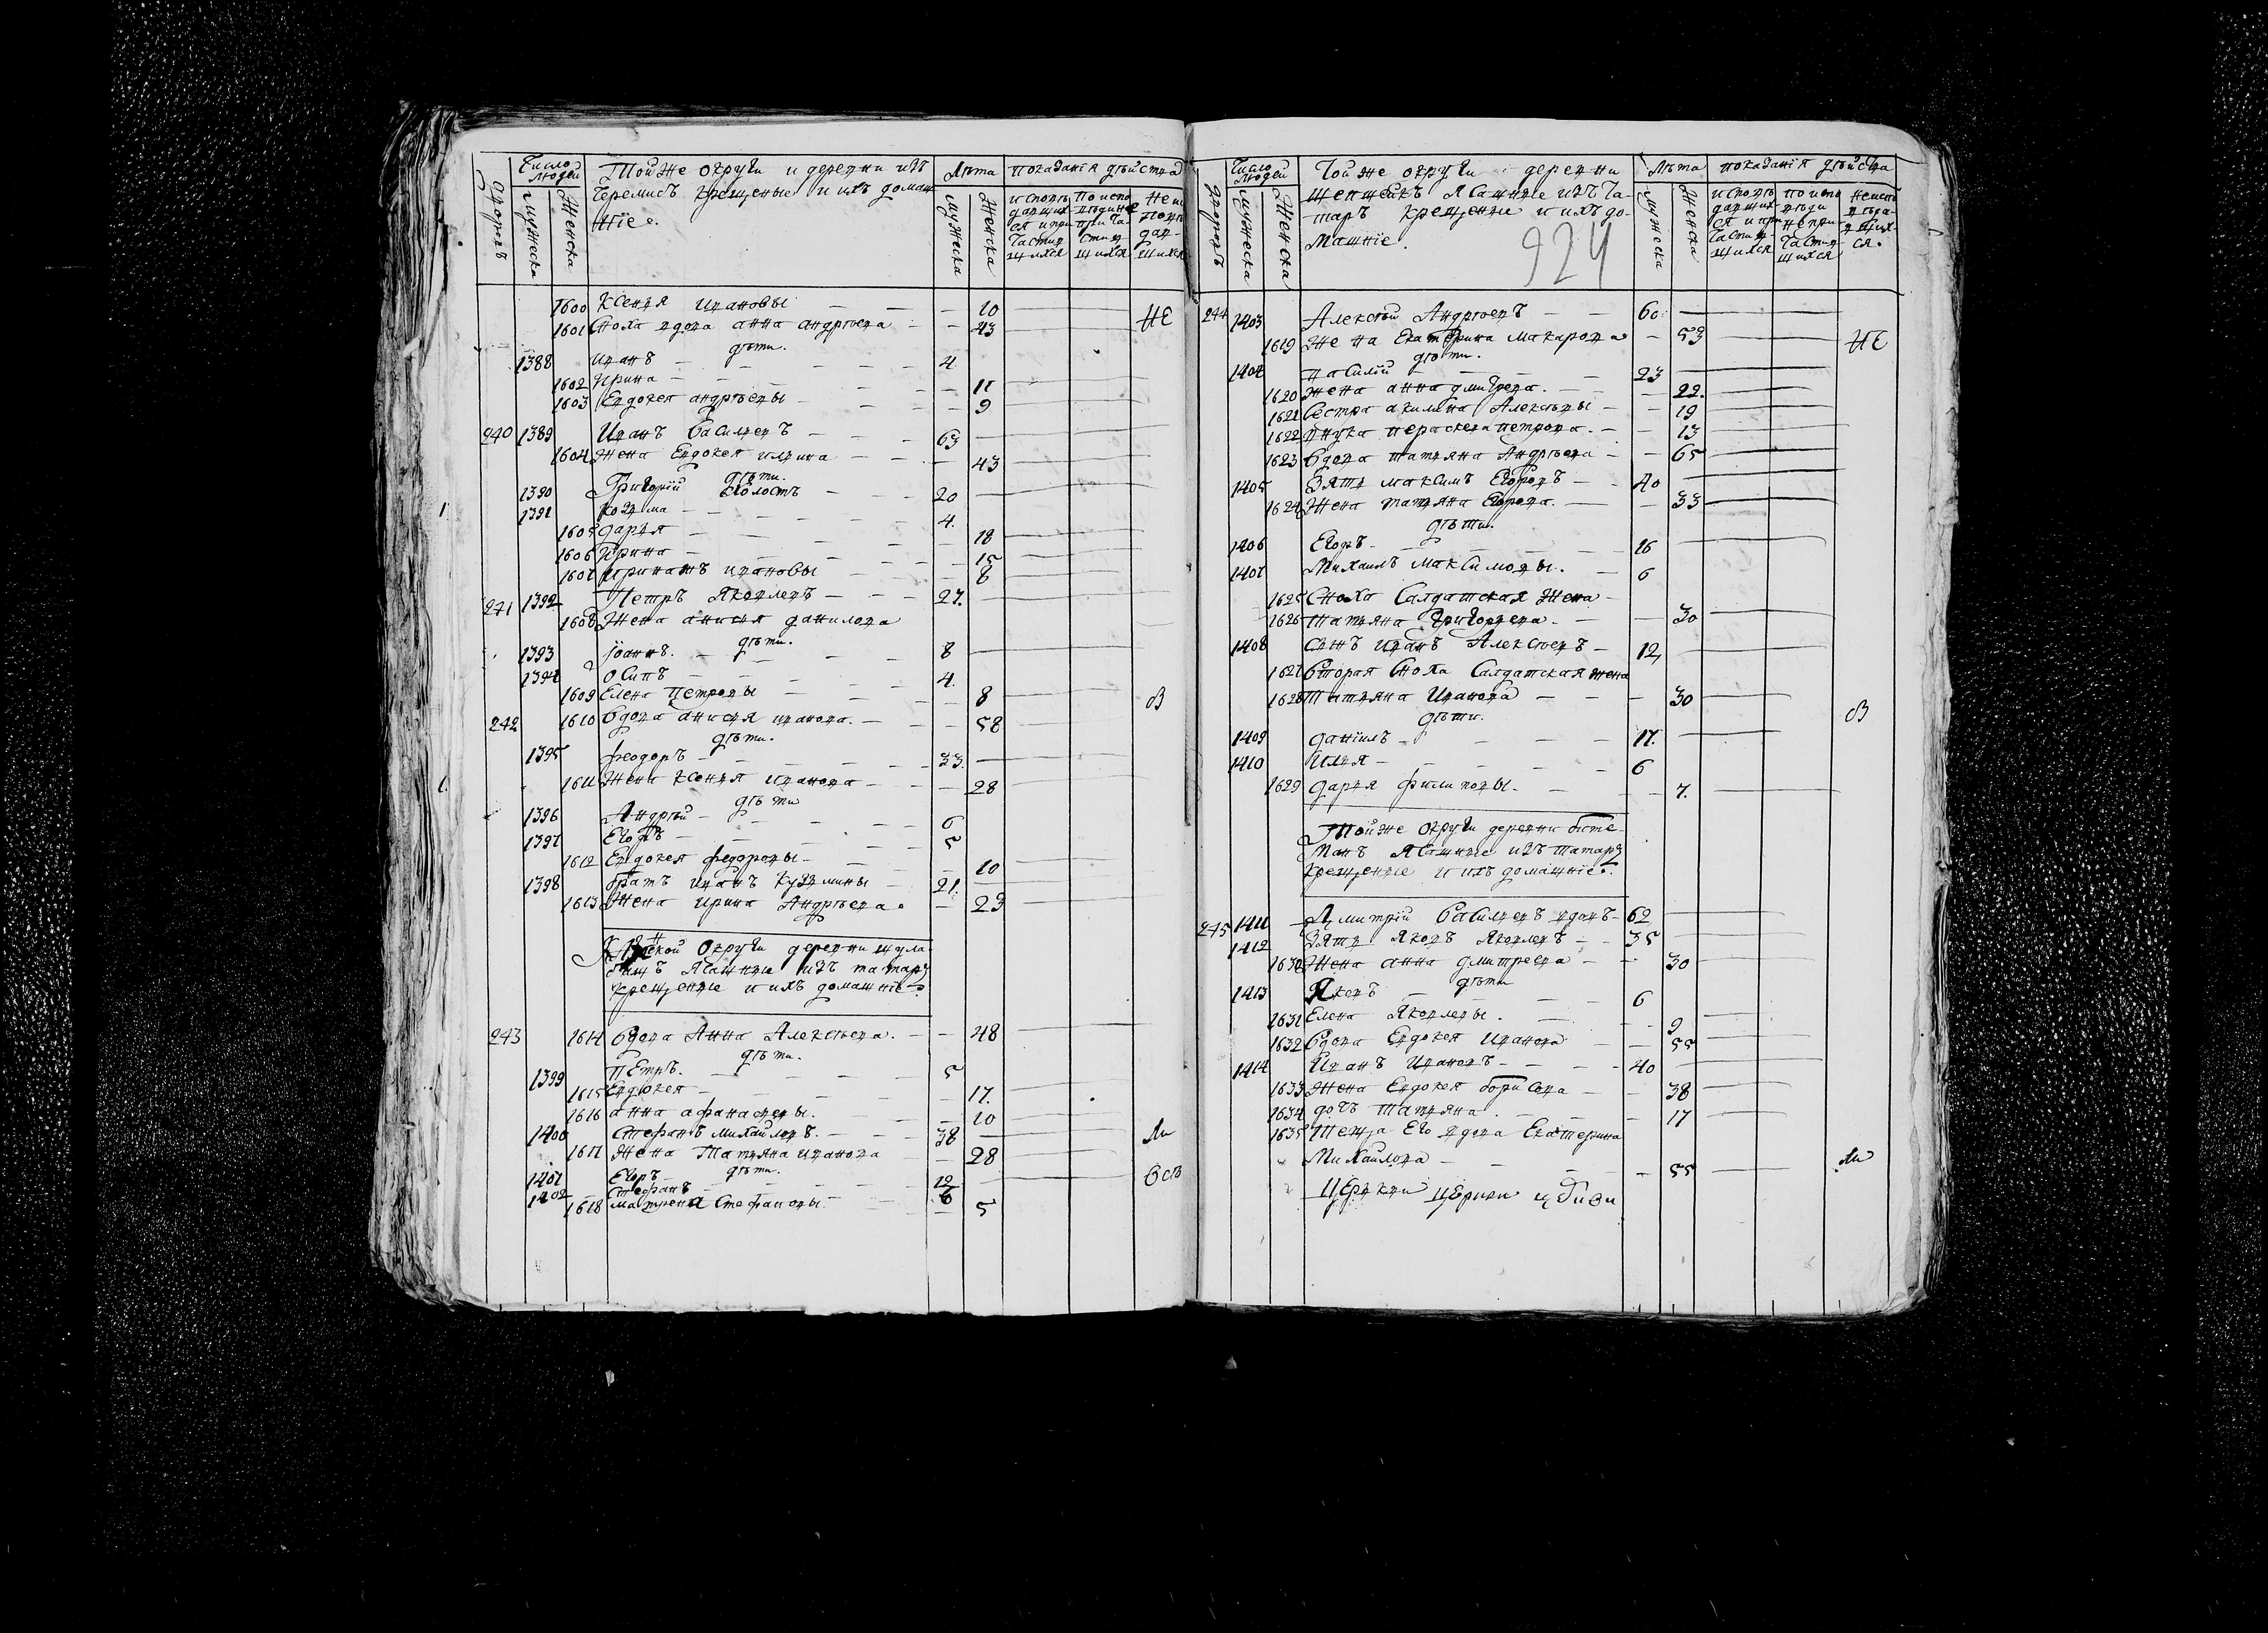 Число людей
Тойже округи и деревни изъ
Черемисъ крещеные и ихъ домаш
ніе.
Лѣта
показанія дѣйства
дворовъ
мужеска
Женска
мужеска
Женска
1600 Ксенья Ивановы — — — 10
1601 Сноха вдова анна андрѣева — — 43 НЕ
дѣти.
1388 Иванъ — — — 4
1602 Ирина — — — 11
1603 Евдокея андрѣевы — — — 9
240 1389 Иванъ Василѣевъ — — — 63
1604 Жена Евдокея илѣина — — — 43
дѣти.
1390 Григорій холостъ — — 20
1391 Козма — — — 4.
1605 дарья — — — 18
1606 Ирина — — — 15
1607 ивановы — — 8
241 1392 Петръ Яковлевъ — — — 27.
1608 Жена анисья данилова
дѣти.
1393 іоаннъ. — — — 8
1394 Осипъ — — — 4.
1609 Елена Петровы — — — 8 В
242 1610 Вдова анисья иванова. — — 58
дѣти.
1395 Феодоръ — — — 33.
1611 Жена Ксенья Иванова — — 28
дѣти
1396 Андрѣй — — — 6
1397 Егоръ — — — 5
1612 Евдокея федоровы — — 10
1398 братъ Иванъ Кузмины — 21.
1613 Жена Ирина Андрѣева. — 23
округи деревни шула
бащъ Ясашные изъ татаръ
крещеные и ихъ домашніе
243 1614 Вдова Анна Алексѣева. — 48
дѣти.
1399 ПЕтръ. — — — 5
1615 Евдокея — — — 17.
1616 анна афанасѣевы. — — 10
1400 Стефанъ Михайловъ. — — 38 Ли
1617 Жена Татьяна иванова — 28
дѣти.
1401 Егоръ — — 12
1402 Стефанъ — — 6
1618 матрена Стефановы — — 5
Число людей
Той же округи деревни
Ясашные изъ Та-
таръ крещеные и ихъ до-
машніе.
924
Лѣта
показанія дѣйства
дворовъ
мужеска
Женска
мужеска
Женска
244 1403 Алексѣй Андрѣевъ — — 60
1619 Жена Екатерина Макарова — 53 НЕ
дѣти.
1404 василій — — — 23
1620 жена анна дмитрева. — — 22.
1621 Сестра акилина Алексѣевы — — 19
1622 внука пераскева петрова. — — 13
1623 Вдова татьяна Андрѣева — — 65
1405 Зять максимъ Егоровъ — — 40
1624 Жена татьяна Егорова. — — 33
дѣти.
1406 Егоръ — — — 16
1407 Михаилъ максимовы. — 6
1625 Сноха Салдатская Жена —
1626 татьяна Григорьева. — — 30
1408 сынъ иванъ Алексѣевъ — 12,
1627 Вторая Сноха Салдатская жена
1628 татьяна Иванова — — 30
дѣти. В
1409 даніилъ — — — 17.
1410 Илья — — — 6
1629 дарья филиповы. — — 7.
Тойже Округи деревни
Ясашные изъ татаръ
крещеные и ихъ домашніе.
245 1411 Дмитрій Василѣевъ вдовъ — 62
1412 Зять Яковъ Яковлевъ — — 35
1630 Жена анна дмитреева — — 30
дѣти
1413 — — — 6
1631 Елена Яковлевы. — — 9
1632 Вдова Евдокея Иванова — 55
1414 Иванъ Ивановъ — — — 40
1633 Жена Евдокея борисова — — 38
1634 дочь татьяна. — — — 17
1635 Теща Его вдова Екатерина
Михайлова — — — 55 Ли